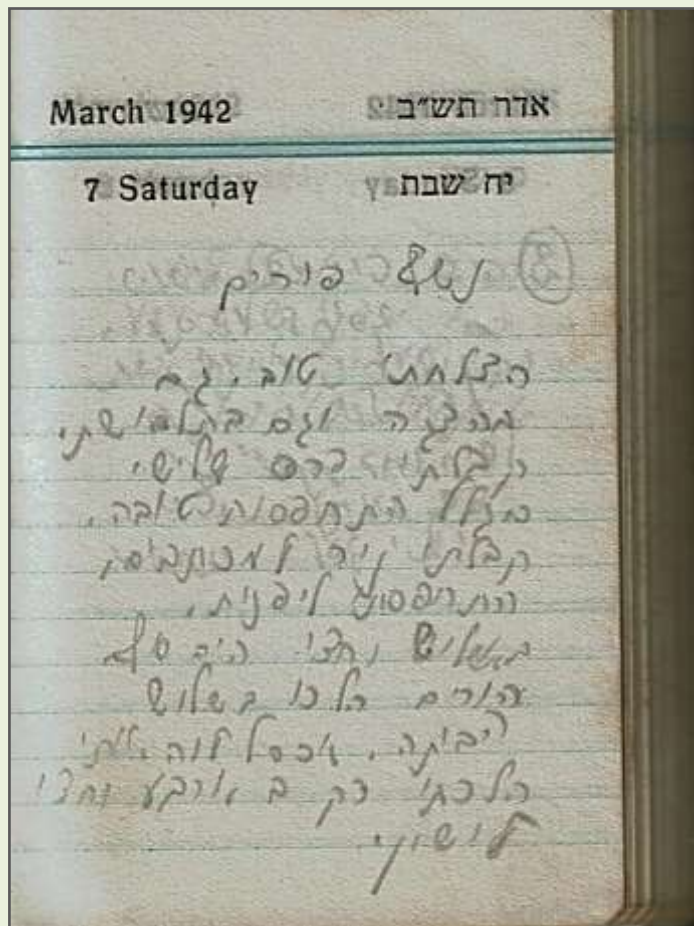 March 1942 אדר תש״ב
7 Saturday יח שבת
נשף פורים
הצלחתי טוב, גם
בהצגה וגם בתלבושתי,
קבלתי פרס שלישי
בגלל התחפסות טובה.
קבלתי ניר למכתבים,
התחפסותי ליפנית.
משלוש וחצי
ההורים הלכו בשלוש
הביתה. אבסלו לוה אותי
הלכתי רק ב ארבע וחצי
לישון.